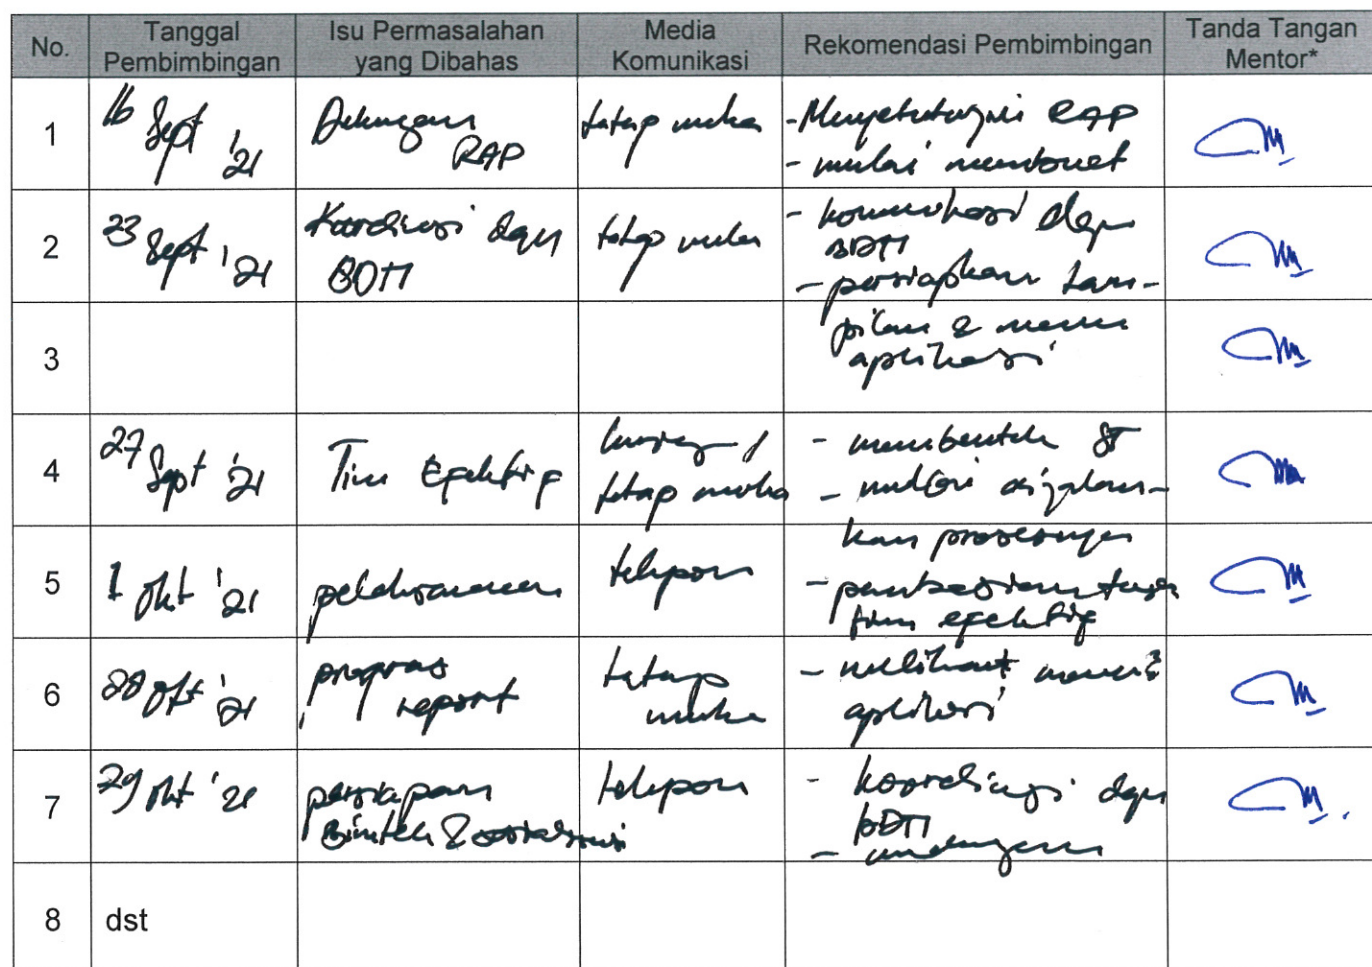 No.
Tanggal
Pembimbingan
Isu Permasalahan
yang Dibahas
Media
Komunikasi
Rekomendasi Pembimbingan
Tanda Tangan
Mentor*
1
16 Sept '21
Dukungan
RAP
tatap muka
- Menyetujui RAP
- mulai membuat
2
23 Sept '21
Koordinasi dgn
BDTI
tatap muka
- komunikasi dgn
BDTI
- persiapkan tam-
3
pilan & menu
aplikasi
4
27 Sept '21
Tim Efektif
tatap muka
- membentuk ST
- mulai dijalan-
5
1 Okt '21
pelaksanaan
telepon
kan prosesnya
- pembagian tugas
tim efektif
6
28 Okt '21
progres
report
tatap
muka
- melihat menu²
aplikasi
7
29 Okt '21
persiapan
Bimtek & sosialisasi
telepon
- koordinasi dgn
BDTI
- undangan
8
dst